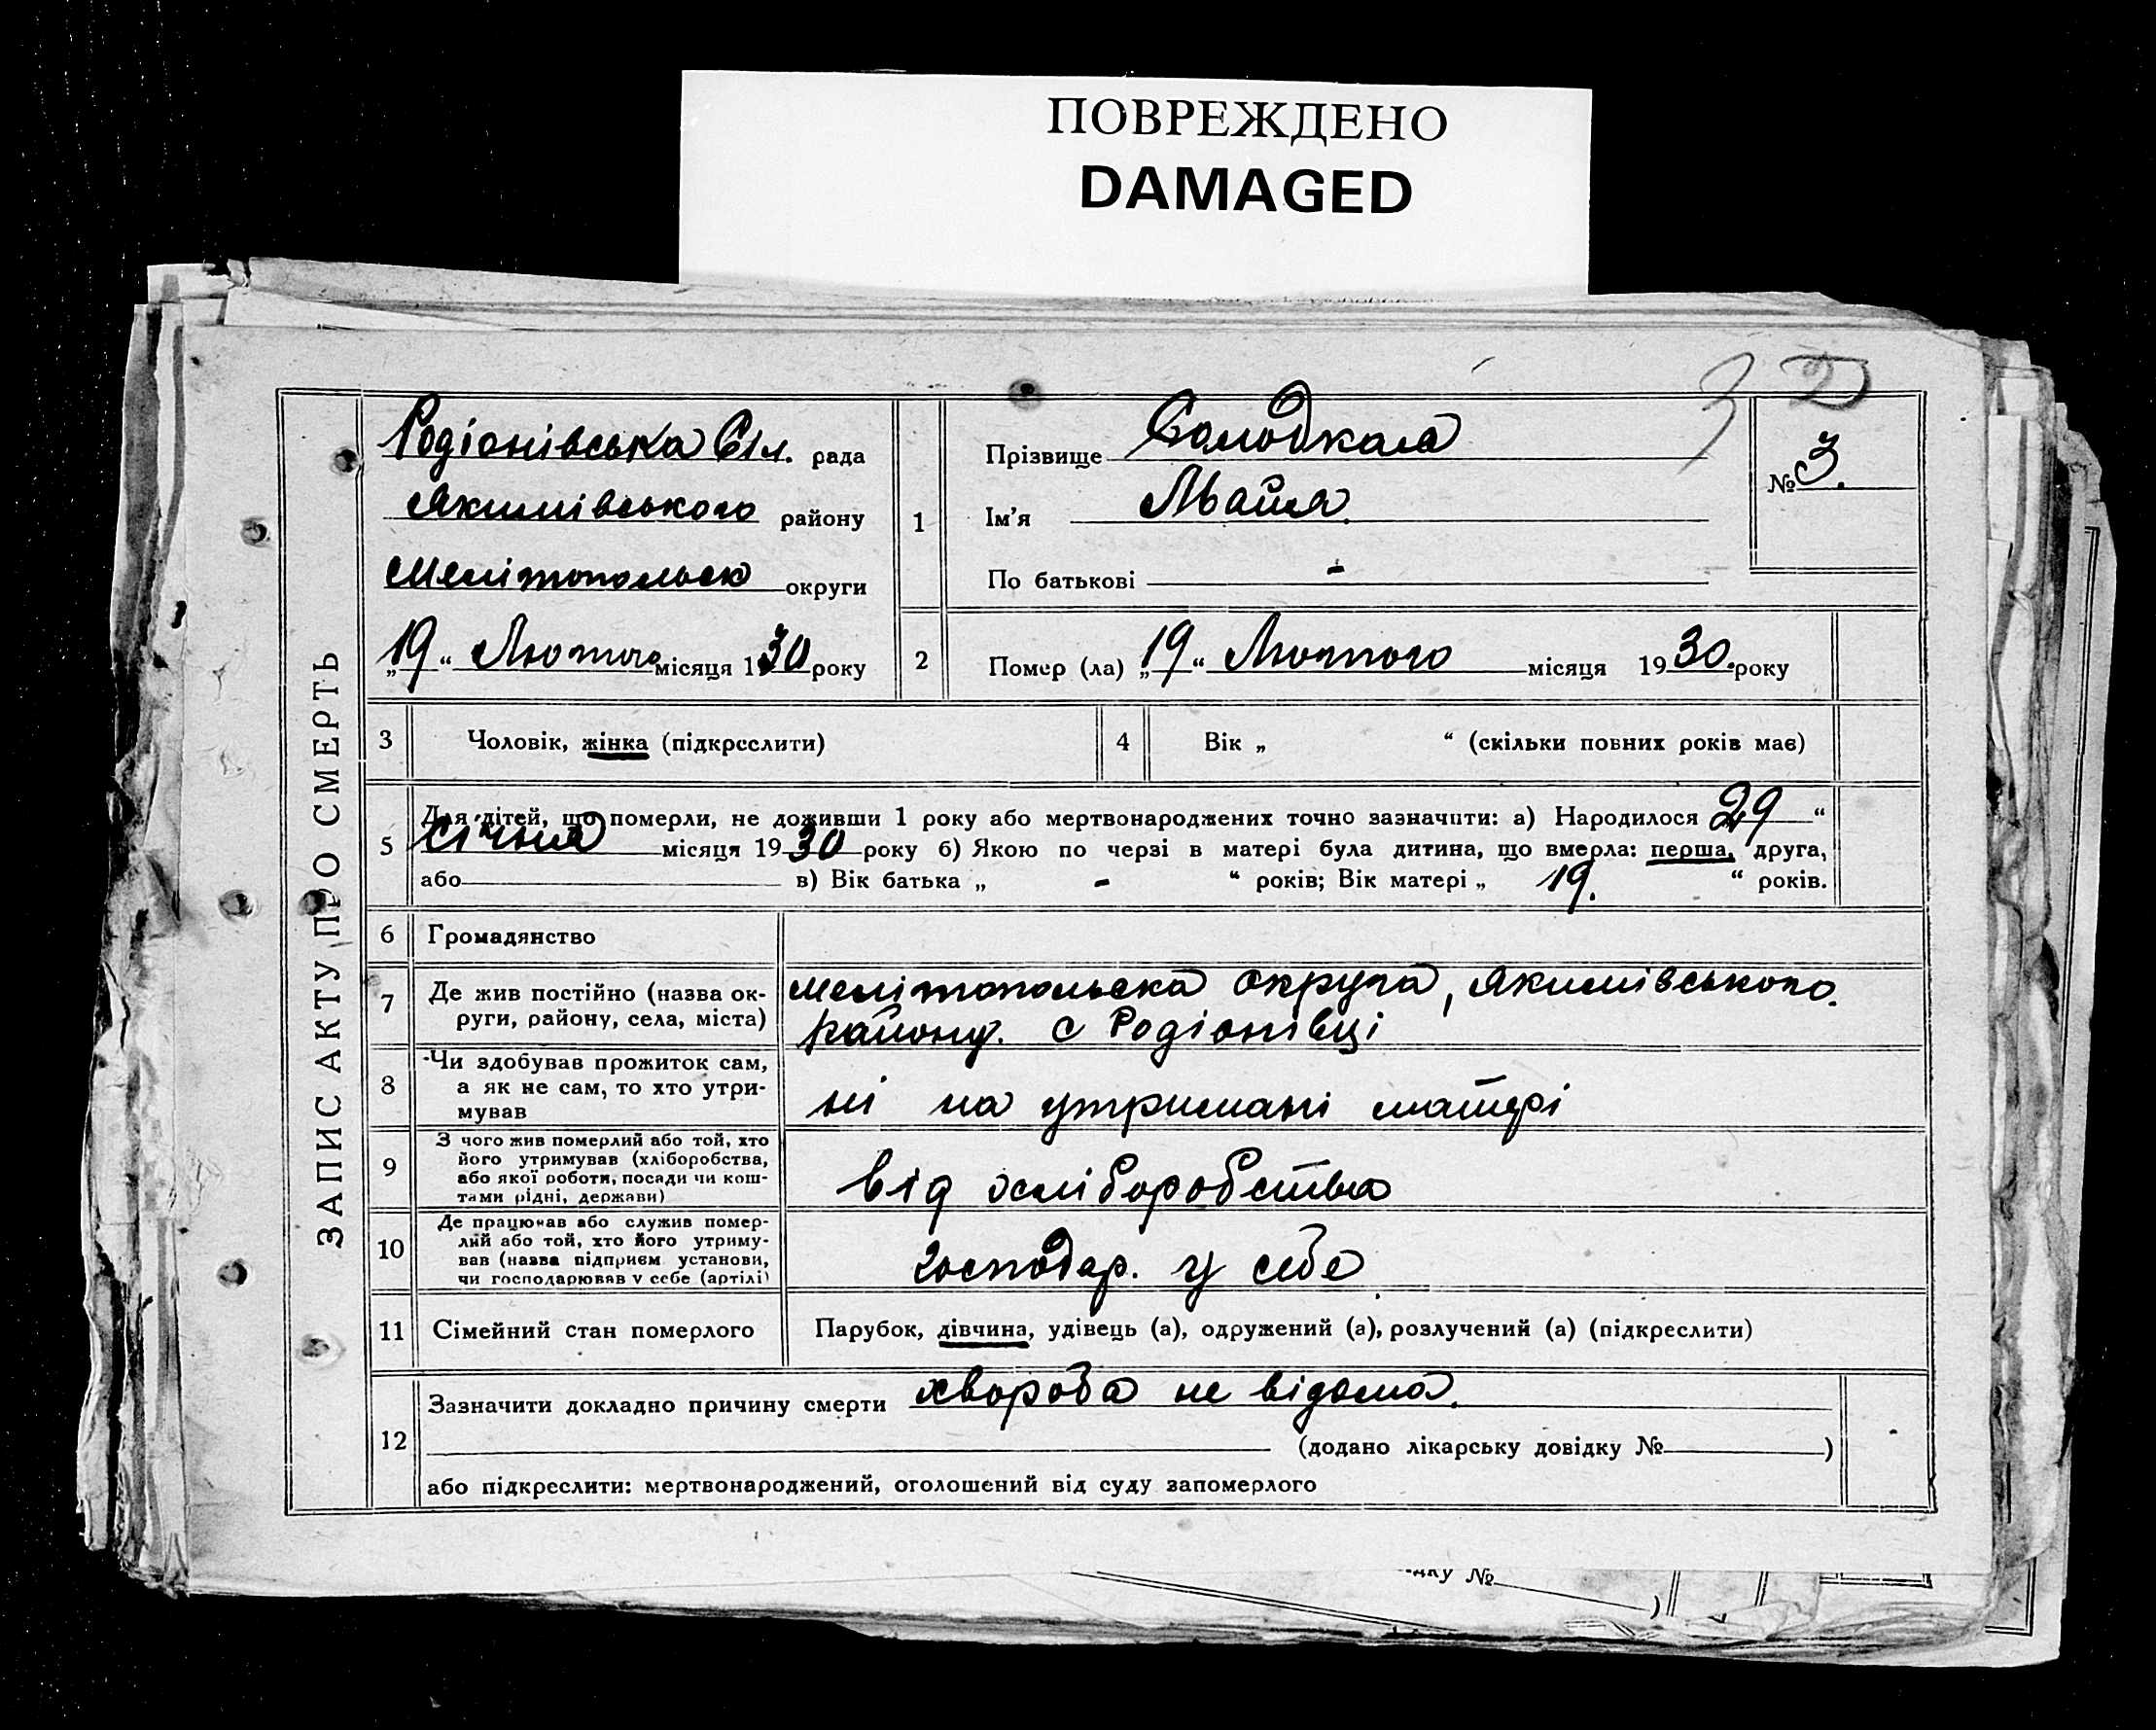 ПОВРЕЖДЕНО
DAMAGED
З
ЗАПИС АКТУ ПРО СМЕРТЬ
Родіонівська Сіл. рада
Якимівського району
Мелітопольск округи
„19“ Лютого місяця 1930 року
1
Прізвище Солодкая
Ім’я
По батькові -
№ 3.
2
Помер (ла) „19“ Лютого місяця 1930. року
3
Чоловік, жінка (підкреслити)
4
Вік „ “ (скільки повних років має)
5
Для дітей, що померли, не доживши 1 року або мертвонароджених точно зазначити: а) Народилося „29“
січня місяця 1930 року б) Якою по черзі в матері була дитина, що вмерла: перша, друга,
або в) Вік батька „ - “ років; Вік матері „ 19. “ років.
6
Громадянство
7
Де жив постійно (назва ок-
руги, району, села, міста)
мелітопольска округа, якимівського.
району. с Родіонівці
8
Чи здобував прожиток сам,
а як не сам, то хто утри-
мував
ні на утримані матері
9
З чого жив померлий або той, хто
його утримував (хліборобства,
або якої роботи, посади чи кош-
тами рідні, держави)
від хліборобства
10
Де працював або служив помер-
лий або той, хто його утриму-
вав (назва підприєм установи,
чи господарював у себе (артілі)
господар. у себе
11
Сімейний стан померлого
Парубок, дівчина, удівець (а), одружений (а), розлучений (а) (підкреслити)
12
Зазначити докладно причину смерти хвороба не відома.
(додано лікарську довідку № )
або підкреслити: мертвонароджений, оголошений від суду запомерлого
-дку № )